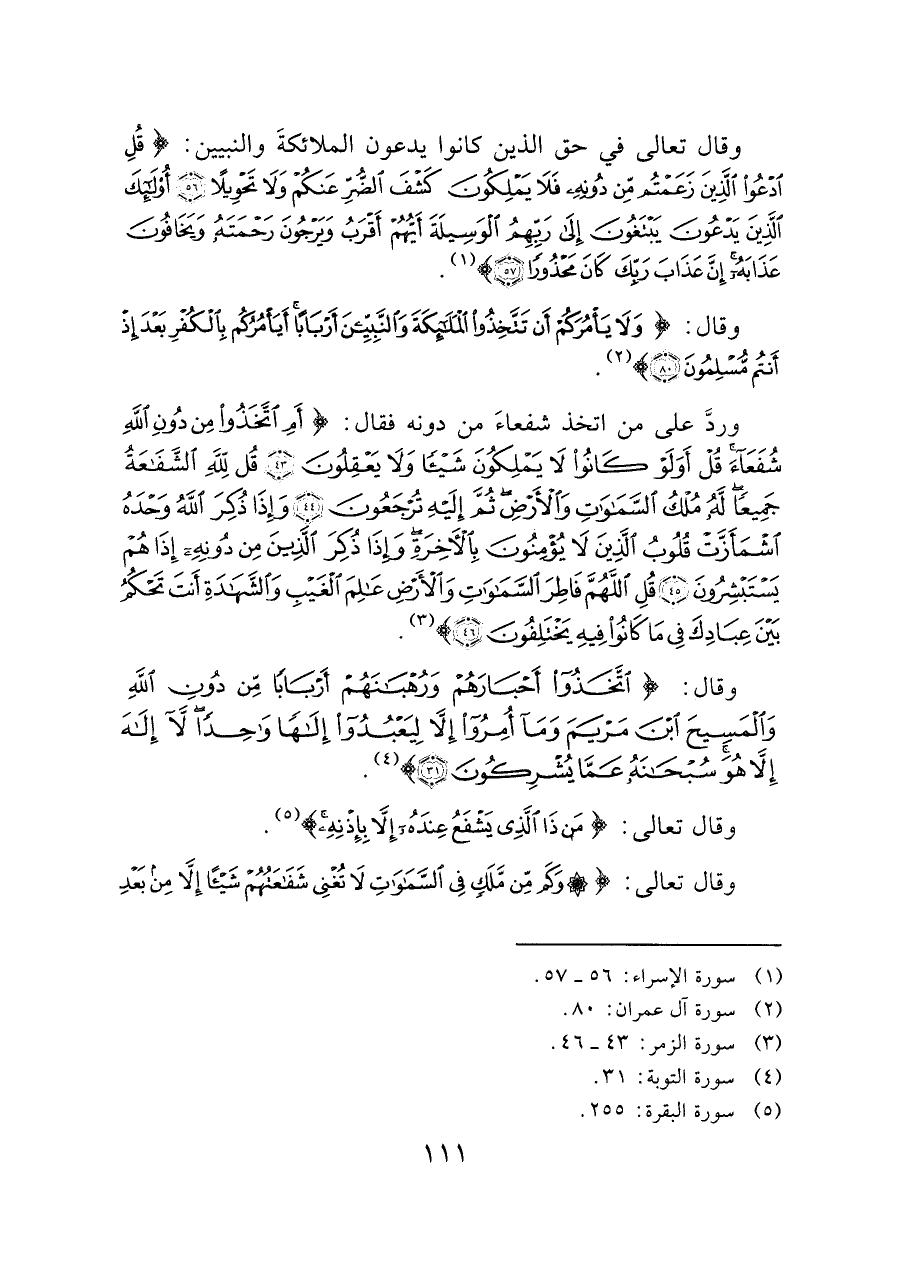 وقال تعالى في حق الذين كانوا يدعون الملائكةَ والنبيين: ﴿ قُلِ
ٱدْعُوا۟ ٱلَّذِينَ زَعَمْتُم مِّن دُونِهِۦ فَلَا يَمْلِكُونَ كَشْفَ ٱلضُّرِّ عَنكُمْ وَلَا تَحْوِيلًا ۝٥٦ أُو۟لَٰٓئِكَ
ٱلَّذِينَ يَدْعُونَ يَبْتَغُونَ إِلَىٰ رَبِّهِمُ ٱلْوَسِيلَةَ أَيُّهُمْ أَقْرَبُ وَيَرْجُونَ رَحْمَتَهُۥ وَيَخَافُونَ
عَذَابَهُۥٓ ۚ إِنَّ عَذَابَ رَبِّكَ كَانَ مَحْذُورًا ۝٥٧ ﴾(١) .
وقال: ﴿ وَلَا يَأْمُرَكُمْ أَن تَتَّخِذُوا۟ ٱلْمَلَٰٓئِكَةَ وَٱلنَّبِيِّـۧنَ أَرْبَابًا ۗ أَيَأْمُرُكُم بِٱلْكُفْرِ بَعْدَ إِذْ
أَنتُم مُّسْلِمُونَ ۝٨٠ ﴾(٢) .
وردَّ على من اتخذ شفعاءَ من دونه فقال: ﴿ أَمِ ٱتَّخَذُوا۟ مِن دُونِ ٱللَّهِ
شُفَعَآءَ ۚ قُلْ أَوَلَوْ كَانُوا۟ لَا يَمْلِكُونَ شَيْـًٔا وَلَا يَعْقِلُونَ ۝٤٣ قُل لِّلَّهِ ٱلشَّفَٰعَةُ
جَمِيعًا ۖ لَّهُۥ مُلْكُ ٱلسَّمَٰوَٰتِ وَٱلْأَرْضِ ۖ ثُمَّ إِلَيْهِ تُرْجَعُونَ ۝٤٤ وَإِذَا ذُكِرَ ٱللَّهُ وَحْدَهُ
ٱشْمَأَزَّتْ قُلُوبُ ٱلَّذِينَ لَا يُؤْمِنُونَ بِٱلْءَاخِرَةِ ۖ وَإِذَا ذُكِرَ ٱلَّذِينَ مِن دُونِهِۦٓ إِذَا هُمْ
يَسْتَبْشِرُونَ ۝٤٥ قُلِ ٱللَّهُمَّ فَاطِرَ ٱلسَّمَٰوَٰتِ وَٱلْأَرْضِ عَٰلِمَ ٱلْغَيْبِ وَٱلشَّهَٰدَةِ أَنتَ تَحْكُمُ
بَيْنَ عِبَادِكَ فِى مَا كَانُوا۟ فِيهِ يَخْتَلِفُونَ ۝٤٦ ﴾(٣) .
وقال: ﴿ ٱتَّخَذُوٓا۟ أَحْبَارَهُمْ وَرُهْبَٰنَهُمْ أَرْبَابًا مِّن دُونِ ٱللَّهِ
وَٱلْمَسِيحَ ٱبْنَ مَرْيَمَ وَمَآ أُمِرُوٓا۟ إِلَّا لِيَعْبُدُوٓا۟ إِلَٰهًا وَٰحِدًا ۖ لَّآ إِلَٰهَ
إِلَّا هُوَ ۚ سُبْحَٰنَهُۥ عَمَّا يُشْرِكُونَ ۝٣١ ﴾(٤) .
وقال تعالى: ﴿ مَن ذَا ٱلَّذِى يَشْفَعُ عِندَهُۥٓ إِلَّا بِإِذْنِهِۦ ۚ ﴾(٥) .
وقال تعالى: ﴿ ۞ وَكَم مِّن مَّلَكٍ فِى ٱلسَّمَٰوَٰتِ لَا تُغْنِى شَفَٰعَتُهُمْ شَيْـًٔا إِلَّا مِنۢ بَعْدِ
(١) سورة الإسراء: ٥٦ ـ ٥٧.
(٢) سورة آل عمران: ٨٠.
(٣) سورة الزمر: ٤٣ ـ ٤٦.
(٤) سورة التوبة: ٣١.
(٥) سورة البقرة: ٢٥٥.
١١١